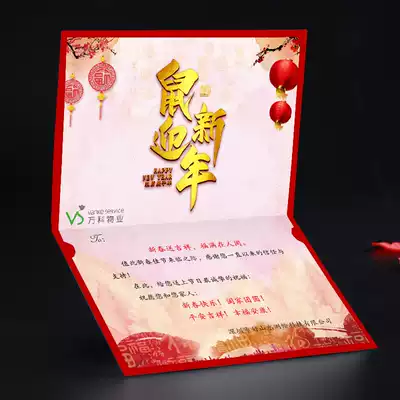 鼠迎新年
HAPPY
NEW YEAR
vanke service
万科物业
To:
新春送吉祥，福满在人间。
值此新春佳节来临之际，感谢您一直以来的信任与
支持！
在此，给您送上节日最诚挚的祝福：
祝愿您和您家人：
新春快乐！阖家团圆！
平安吉祥！幸福安康！
有限公司